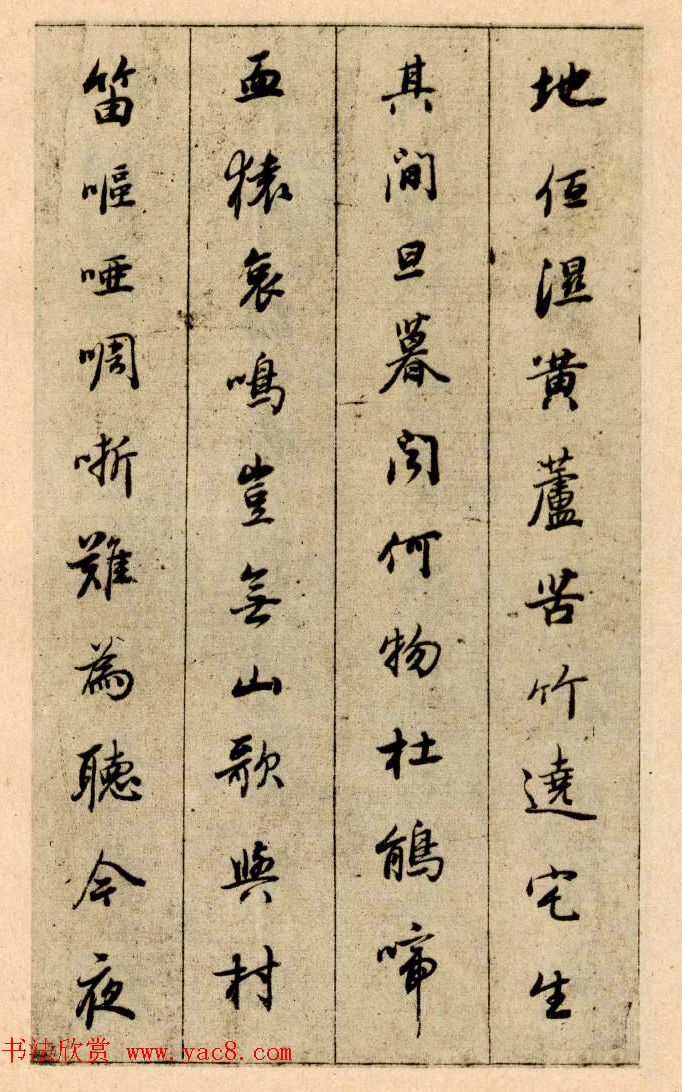 地低湿黃蘆苦竹遶宅生
其間旦暮聞何物杜鵑啼
血猿哀鳴豈無山歌與村
笛嘔啞啁哳難為聽今夜
书法欣赏 www.yac8.com